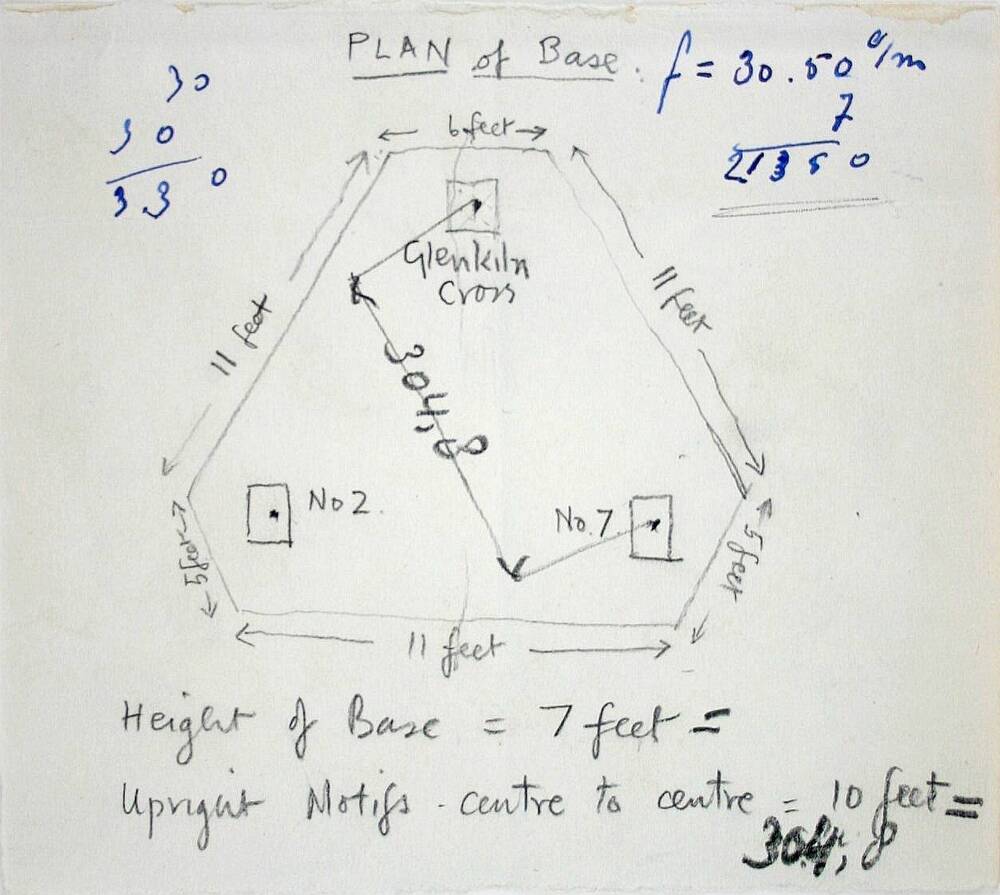 PLAN of Base.
f = 30.50 c/m
7
21350
30
30
3.30
6 feet
Glenkiln
Cross
11 feet
11 feet
304,8
No 2.
No. 7
5 feet
5 feet
11 feet
Height of Base = 7 feet =
Upright Motifs - centre to centre = 10 feet =
304,8